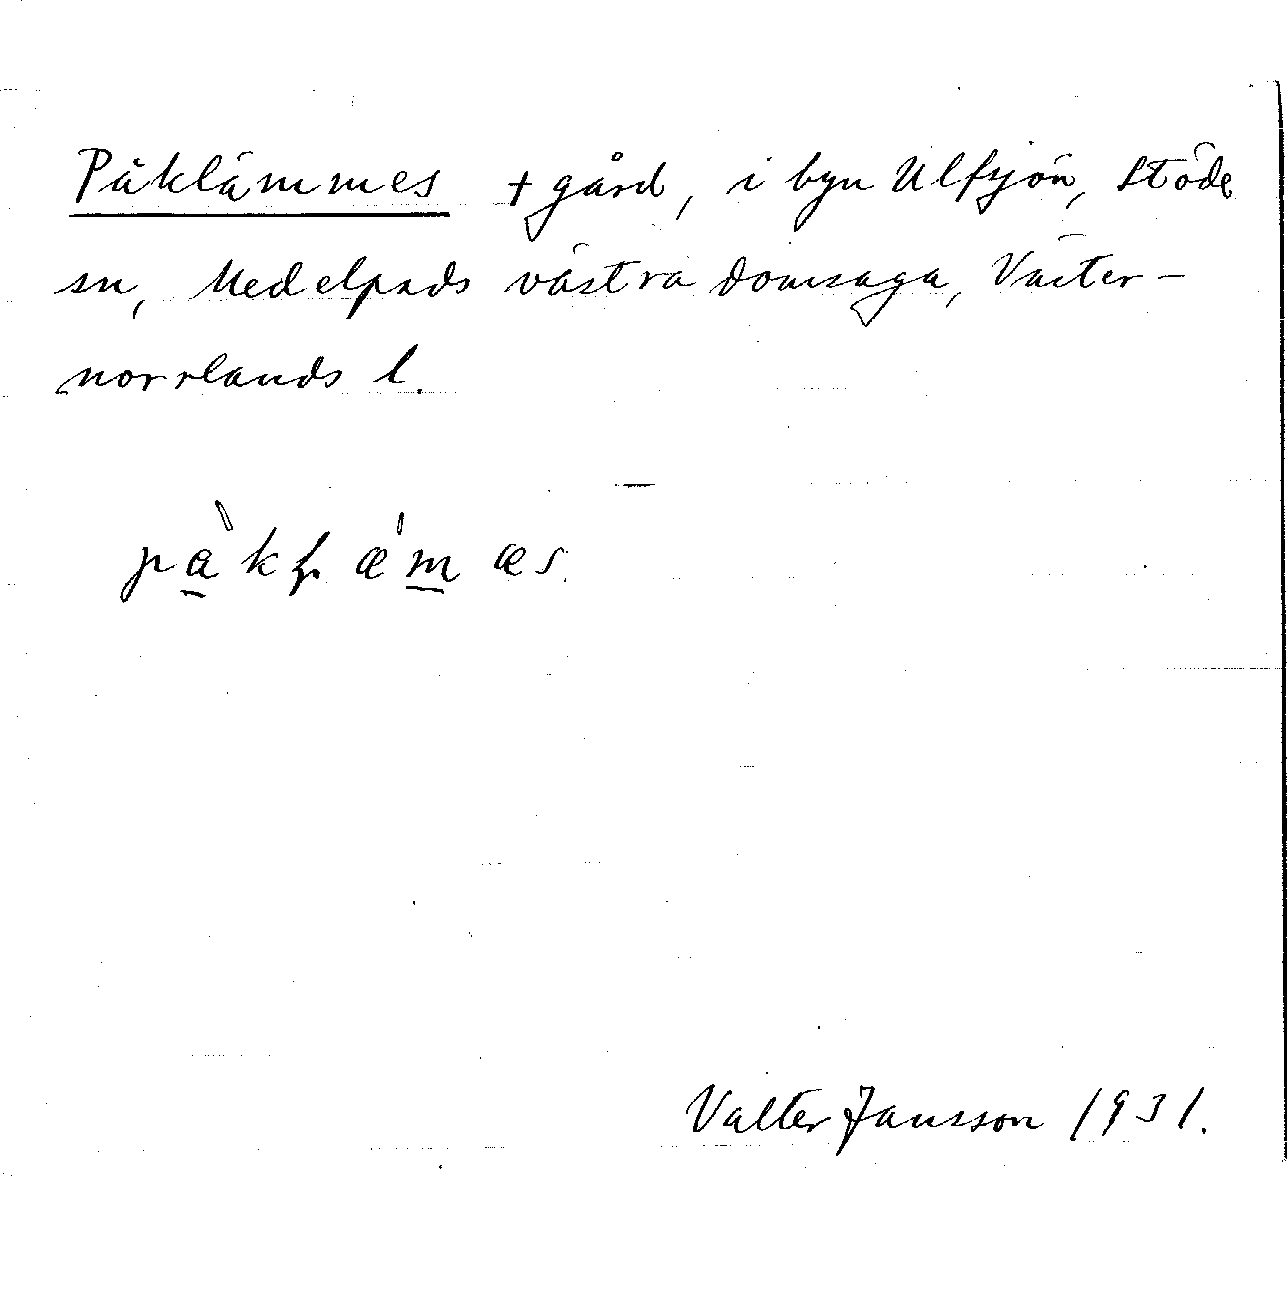 Påklämmes + gård, i byn Ulfsjön, Stöde
sn, Medelpads västra domsaga, Väster-
norrlands l.
Valter Jansson 1931.